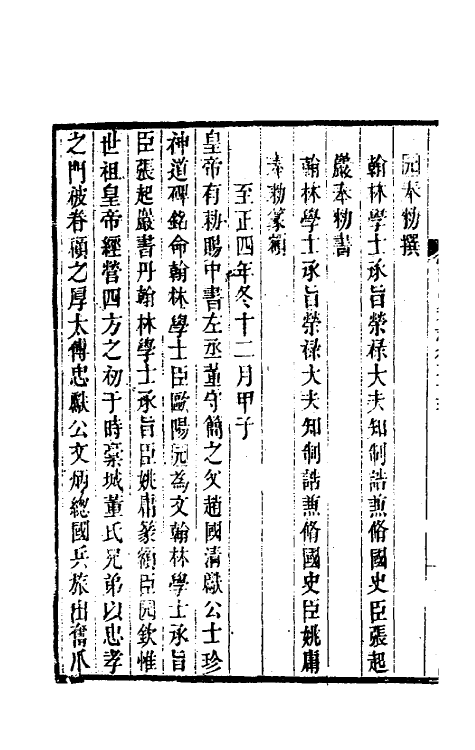 玄奉勑撰
翰林學士承旨榮祿大夫知制誥兼脩國史臣張起
嚴奉勑書
翰林學士承旨榮祿大夫知制誥兼脩國史臣姚庸
奉勑篆額
至正四年冬十二月甲子
皇帝有勑賜中書左丞董守簡之父趙國清獻公士珍
神道碑銘命翰林學士臣歐陽玄為文翰林學士承旨
臣張起巖書丹翰林學士承旨臣姚庸篆額臣玄欽惟
世祖皇帝經營四方之初于時藁城董氏兄弟以忠孝
之門被眷顧之厚太傅忠獻公文炳總國兵旅出奮爪